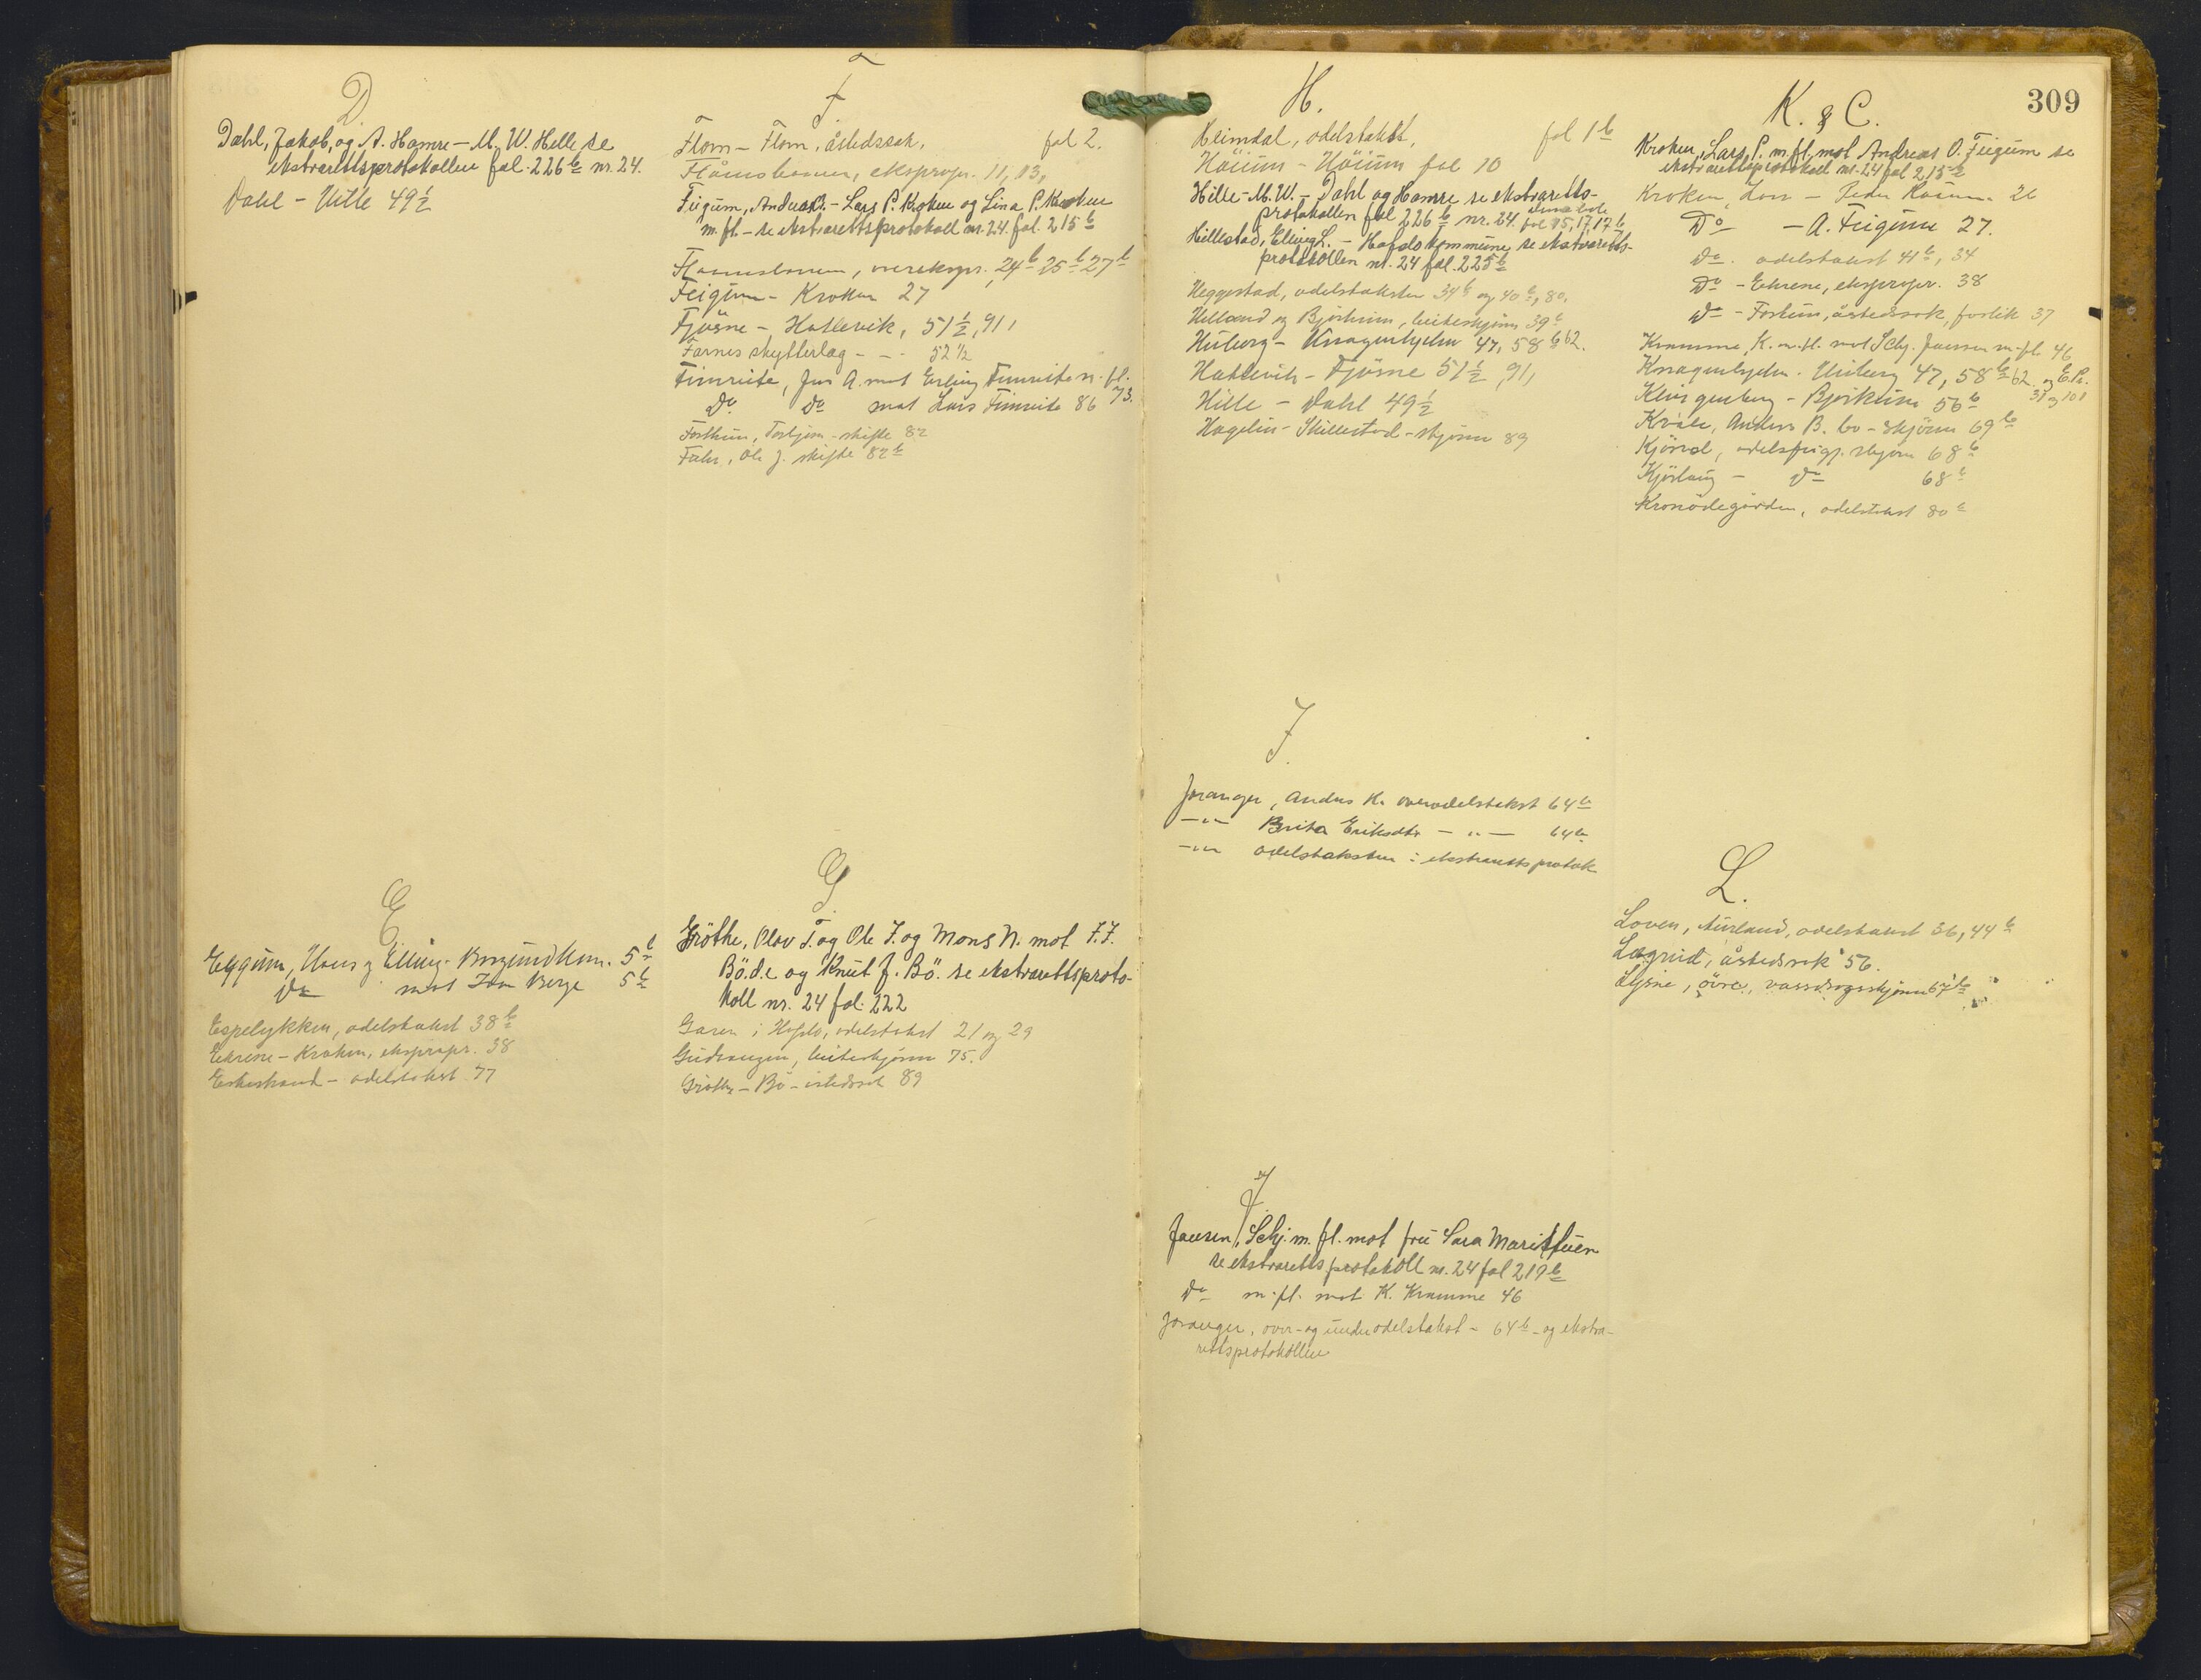 D.
Dahl, Jakob, og A. Hamre - M. W. Hille se
ekstrarettsprotokollen fol. 226 b nr. 24.
Dahl - Hille 49 1/2
E
Eggum, Hans og Elling - Borgund Kom. 5 b
Do mot Berge 5 b
Espelykken, odelstakst 38 b
Ekrene - Kroken, ekspropr. 38
odelstakst 77
F.
Flom - Flom, åstedssak, fol 2.
Flåmsbanen, ekspropr. 11, 13,
Feigum, Andreas O. - Lars P. Kroken og Lina P. Kroken
m. fl. - se ekstrarettsprotokoll nr. 24. fol. 215 b
Flaamsbanen, overekspr. 24 b 25 b 27 b
Feigum - Kroken 27
Fjøsne - Hatlevik, 51 1/2, 91,
Farnes skytterlag - - - 52 1/2
Fimreite, Jens A. mot Erling Fimreite m. fl. 73.
Do Do mot Lars Fimreite 86
Forthun, Torbjørn - skifte 82
Ole J. skifte 82 b
G.
Grøthe, Olav T. og Ole I. og Mons N. mot I. I.
Bø. d.e og Knut J. Bø. se ekstrarettsproto-
koll nr. 24 fol. 222
Garen i Hafslo, odelstakst 21 og 29
Gudvangen, beiteskjønn 75.
Grøthe - Bø - åstedssak 89
H.
Heimdal, odelstakst, fol 1 b
Haüum - Haüum fol 10
Hille - M. W. - Dahl og Hamre se ekstraretts-
protokollen fol 226 b nr. 24. fol 15, 17, 17 b
Hillestad, Elling L. - Hafslo kommune se ekstraretts-
protokollen nr. 24 fol. 225 b
Heggestad, odelstakster 34 b og 40 b, 80,
Helland og Bjørkum, beiteskjønn 39 b
Huberg - Knagenhjelm 47, 58 b 62.
Hatlevik - Fjøsne 51 1/2, 91,
Hille - Dahl 49 1/2
Hagelin - Skillestad - skjønn 89
I.
Joranger, Anders K. overodelstakst 64 b
-"- Brita Eriksdtr -"- 64 b
-"- odelstaksten i ekstrarettsprotok
J
Jansen, Schj. m. fl. mot fru Sara Maristuen
se ekstrarettsprotokoll nr. 24 fol 219 b
Do m. fl. mot K. Kramme 46
Joranger, over- og underodelstakst - 64 b - og ekstra-
rettsprotokollen
309
K. & C.
Kroken, Lars P. m. fl. mot Andreas O. Feigum se
ekstrarettsprotokoll nr. 24 fol 215 b
Kroken, Lars - Peder 26
Do - A. Feigum 27.
Do. odelstakst 41 b, 34
Do - Ekrene, ekspropr. 38
Do - Fortun, åstedssak, forlik 37
Kramme, K. m. fl. mot Schj. Jansen m. fl. 46
Knagenhjelm - Huberg 47, 58 b 62 og E.Pr. 31 og 101
Klingenberg - Bjørkum 56 b
Kvåle, Anders B. bo - skjønn 69 b
Kjørnd, odelsfrigj. skjønn 68 b
Kjørlaug - Do 68 b
Kronødegården, odelstakst 80 b
L.
Loven, Aurland, odelstakst 36, 44 b
Lægrid, åstedssak 56.
Ljøsne, øvre, vassdragsskjønn 67 b